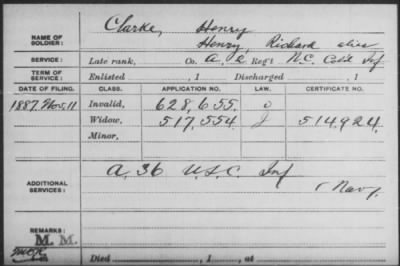 NAME OF SOLDIER: Clarke, Henry
Henry, Richard alias
SERVICE: Late rank, Co. A, 2 Reg't N.C. Col'd Inf
TERM OF SERVICE: Enlisted , 1 Discharged , 1
DATE OF FILING. CLASS. APPLICATION NO. LAW. CERTIFICATE NO.
1887. Nov. 11 Invalid, 628,655.
Widow, 517,554 514,924.
Minor,
ADDITIONAL SERVICES: A, 36 U.S.C. Inf
(Navy.
REMARKS: M. M.
Died , 1 , at